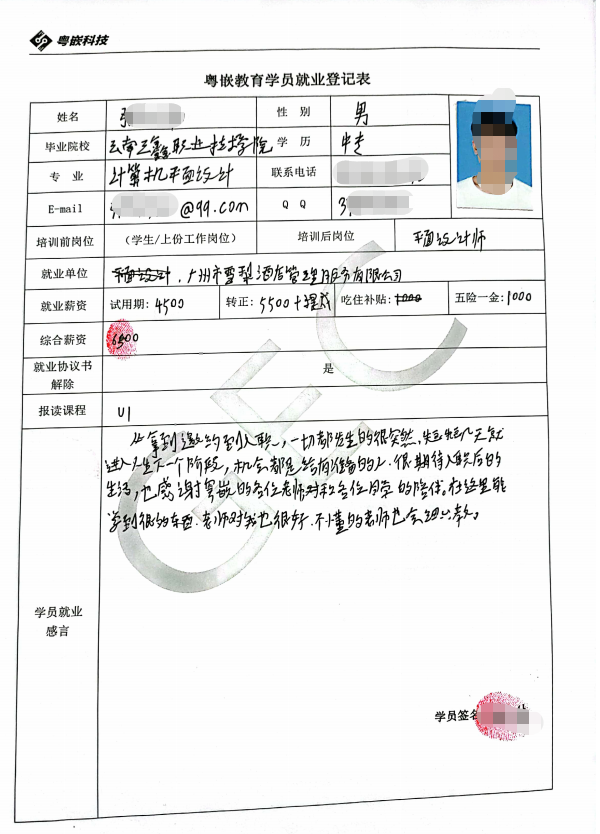 粤嵌科技
粤嵌教育学员就业登记表
姓名 张 性别 男
毕业院校 云南三鑫职业技术学院 学历 中专
专业 计算机平面设计 联系电话
E-mail @qq.com QQ 3
培训前岗位 (学生/上份工作岗位) 培训后岗位 平面设计师
就业单位 平面设计,广州市雪梨酒店管理服务有限公司
就业薪资 试用期: 4500 转正: 5500+提成 吃住补贴: 1000 五险一金: 1000
综合薪资 6500
就业协议书
解除
是
报读课程 UI
GEC
从拿到邀约到入职,一切都发生的很突然,短短几天就
进入人生下一个阶段,机会都是给有准备的人.很期待入职后的
生活,也感谢粤嵌的各位老师对和各位同学的陪伴。在这里能
学到很多东西.老师对我也很好.不懂的老师也会细心教。
学员就业
感言
学员签名